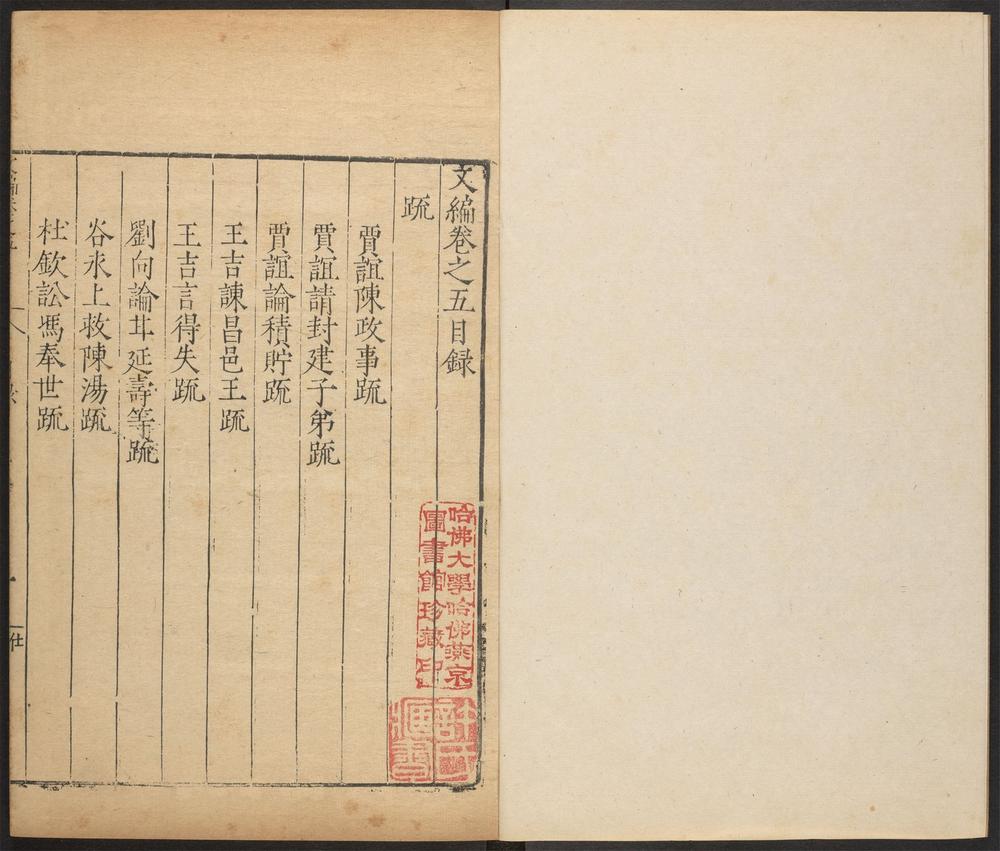 文編卷之五目録
䟽
賈誼陳政事䟽
賈誼請封建子弟䟽
賈誼論積貯䟽
王吉諫昌邑王䟽
王吉言得失䟽
劉向論甘延壽等䟽
谷永上救陳湯䟽
杜欽訟馮奉世䟽
哈佛大學哈佛燕京
圖書館珍藏印